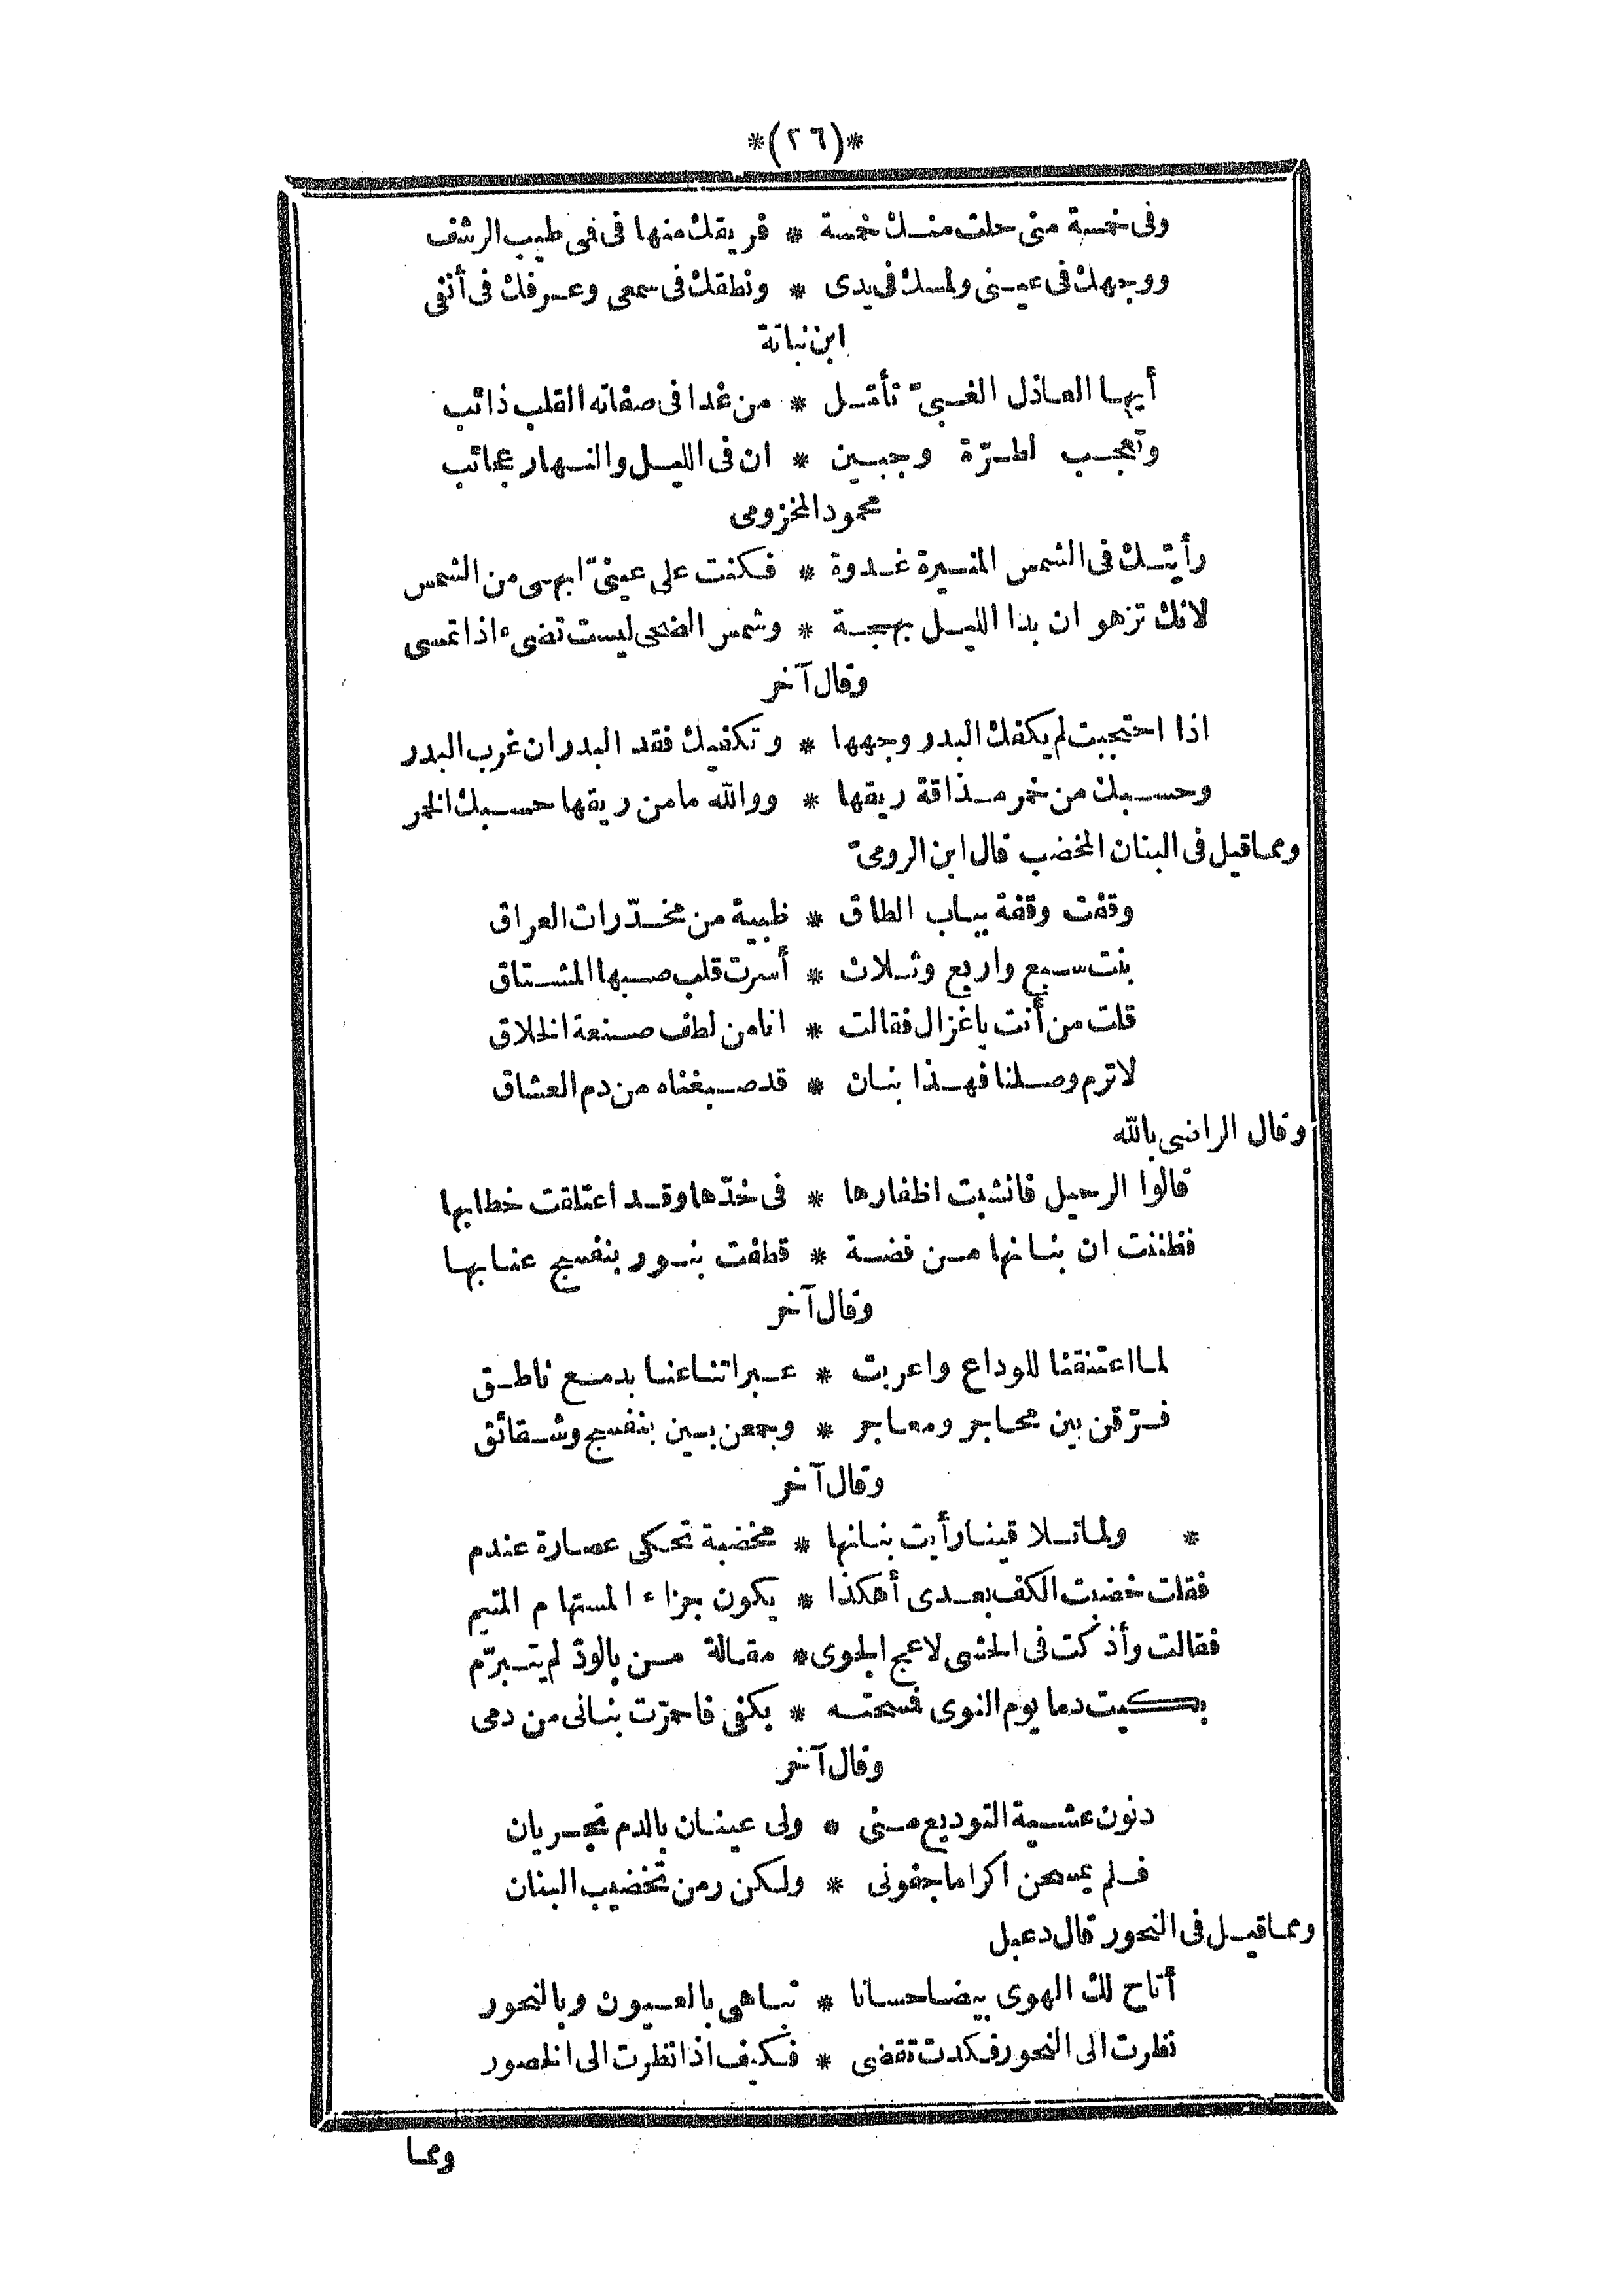 *(٢٦)*
وفى خمسة منى حلت منك خمسة * فريقك منها فى فمى طيب الرشف
ووجهك فى عينى ولمسك فى يدى * ونطقك فى سمعى وعرفك فى أنفى
ابن نباتة
أيها العاذل الغبىّ تأمّل * من غدا فى صفاته القلب ذائب
وتعجب لطرّة وجبين * ان فى الليل والنهار عجائب
محمود المخزومى
رأيتك فى الشمس المنيرة غدوة * فكنت على عينىّ ابهى من الشمس
لانك تزهو ان بدا الليل بهجة * وشمس الضحى ليست تضىء اذا تمسى
وقال آخر
اذا احتجبت لم يكفك البدر وجهها * وتكفيك فقد البدر ان غرب البدر
وحسبك من خمر مذاقة ريقها * ووالله ما من ريقها حسبك الخمر
ومما قيل فى البنان المخضب قال ابن الرومىّ
وقفت وقفة بباب الطاق * ظبية من مخدّرات العراق
بنت سبع واربع وثلاث * أسرت قلب صبها المشتاق
قلت من أنت ياغزال فقالت * انا من لطف صنعة الخلاق
لا ترم وصلنا فهذا بنان * قد صبغناه من دم العشاق
وقال الراضى بالله
قالوا الرحيل فانشبت اظفارها * فى خدّها وقد اعتلقت خطابها
فظننت ان بنانها من فضة * قطفت بنور بنفسج عنابها
وقال آخر
لما اعتنقنا للوداع واعربت * عبراتنا عنا بدمع ناطق
فرّقن بين محاجر ومعاجر * وجمعن بين بنفسج وشقائق
وقال آخر
* ولما تلاقينا رأيت بنانها * مخضبة تحكى عصارة عندم
فقلت خضبت الكف بعدى أهكذا * يكون جزاء المستهام المتيم
فقالت وأذكت فى الحشى لاعج الجوى * مقالة من بالودّ لم يتبرّم
بكيت دما يوم النوى فمسحته * بكفى فاحمرّت بنانى من دمى
وقال آخر
دنون عشية التوديع منى * ولى عينان بالدم تجريان
فلم يمسحن اكراما جفونى * ولكن رمن تخضيب البنان
ومما قيل فى النحور قال دعبل
أتاح لك الهوى بيضا حسانا * تباهى بالعيون وبالنحور
نظرت الى النحور فكدت تقضى * فكيف اذا نظرت الى الخصور
ومما